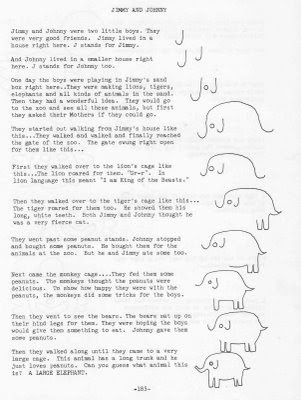 JIMMY AND JOHNNY
Jimmy and Johnny were two little boys. They
were very good friends. Jimmy lived in a
house right here. J stands for Jimmy.
And Johnny lived in a smaller house right
here. J stands for Johnny too.
One day the boys were playing in Jimmy's sand
box right here..They were making lions, tigers,
elephants and all kinds of animals in the sand.
Then they had a wonderful idea. They would go
to the zoo and see all these animals, but first
they asked their Mothers if they could go.
They started out walking from Jimmy's house like
this...They walked and walked and finally reached
the gate of the zoo. The gate swung right open
for them like this...
First they walked over to the lion's cage like
this...The lion roared for them. "Gr-r". In
lion language this meant "I am King of the Beasts."
Then they walked over to the tiger's cage like this...
The tiger roared for them too. He showed them his
long, white teeth. Both Jimmy and Johnny thought he
was a very fierce cat.
They went past some peanut stands. Johnny stopped
and bought some peanuts. He bought them for the
animals at the zoo. But he and Jimmy ate some too.
Next came the monkey cage....They fed them some
peanuts. The monkeys thought the peanuts were
delicious. To show how happy they were with the
peanuts, the monkeys did some tricks for the boys.
Then they went to see the bears. The bears sat up on
their hind legs for them. They were hoping the boys
would give them something to eat. Johnny gave them
some peanuts.
Then they walked along until they came to a very
large cage. This animal has a long trunk and he
just loves peanuts. Can you guess what animal this
is? A LARGE ELEPHANT.
-183-